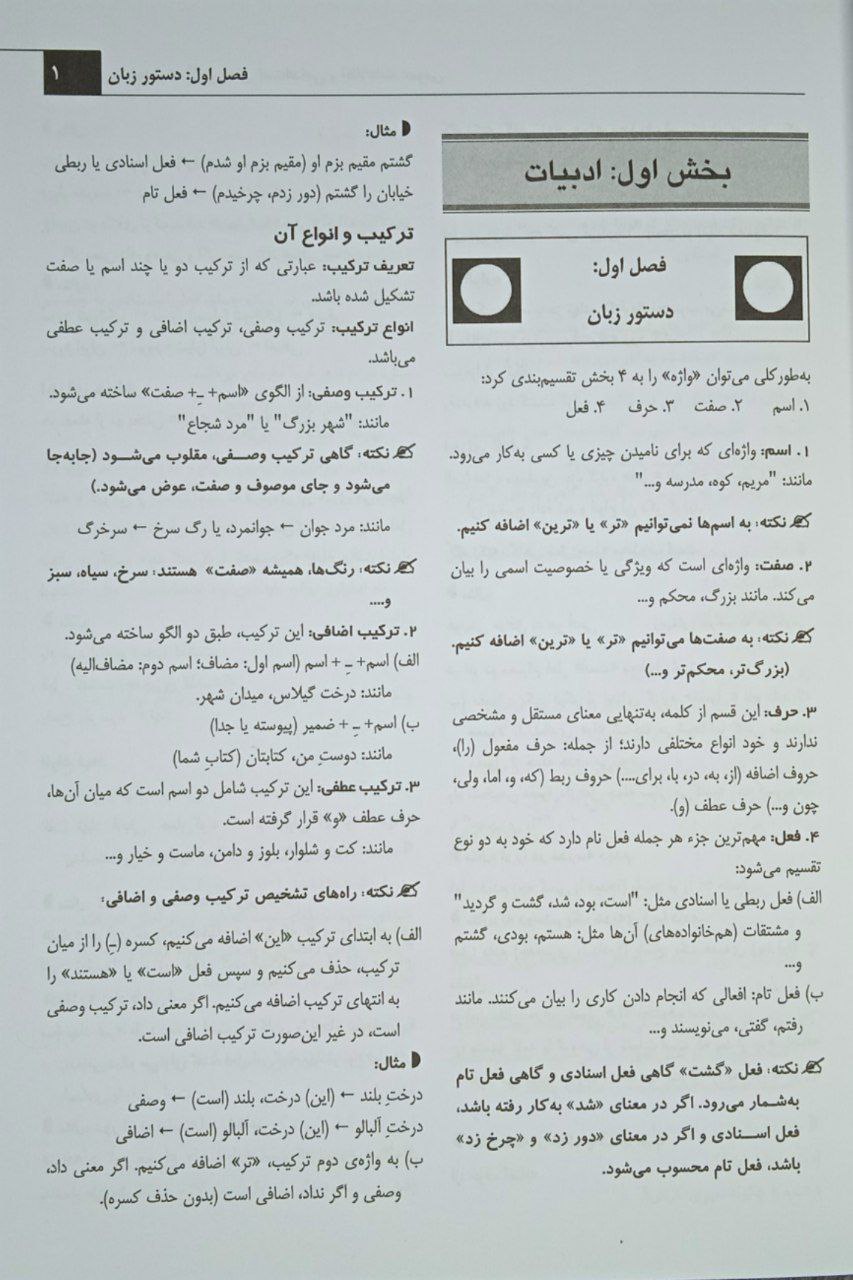 فصل اول: دستور زبان ۱
بخش اول: ادبیات
فصل اول:
دستور زبان
به‌طورکلی می‌توان «واژه» را به ۴ بخش تقسیم‌بندی کرد:
۱. اسم ۲. صفت ۳. حرف ۴. فعل
۱. اسم: واژه‌ای که برای نامیدن چیزی یا کسی به‌کار می‌رود.
مانند: "مریم، کوه، مدرسه و..."
نکته: به اسم‌ها نمی‌توانیم «تر» یا «ترین» اضافه کنیم.
۲. صفت: واژه‌ای است که ویژگی یا خصوصیت اسمی را بیان
می‌کند. مانند بزرگ، محکم و...
نکته: به صفت‌ها می‌توانیم «تر» یا «ترین» اضافه کنیم.
(بزرگ‌تر، محکم‌تر و...)
۳. حرف: این قسم از کلمه، به‌تنهایی معنای مستقل و مشخصی
ندارند و خود انواع مختلفی دارند؛ از جمله: حرف مفعول (را)،
حروف اضافه (از، به، در، با، برای....) حروف ربط (که، و، اما، ولی،
چون و...) حرف عطف (و).
۴. فعل: مهم‌ترین جزء هر جمله فعل نام دارد که خود به دو نوع
تقسیم می‌شود:
الف) فعل ربطی یا اسنادی مثل: "است، بود، شد، گشت و گردید"
و مشتقات (هم‌خانواده‌های) آن‌ها مثل: هستم، بودی، گشتم
و...
ب) فعل تام: افعالی که انجام دادن کاری را بیان می‌کنند. مانند
رفتم، گفتی، می‌نویسند و...
نکته: فعل «گشت» گاهی فعل اسنادی و گاهی فعل تام
به‌شمار می‌رود. اگر در معنای «شد» به‌کار رفته باشد،
فعل اسنادی و اگر در معنای «دور زد» و «چرخ زد»
باشد، فعل تام محسوب می‌شود.
مثال:
گشتم مقیم بزم او (مقیم بزم او شدم) ← فعل اسنادی یا ربطی
خیابان را گشتم (دور زدم، چرخیدم) ← فعل تام
ترکیب و انواع آن
تعریف ترکیب: عبارتی که از ترکیب دو یا چند اسم یا صفت
تشکیل شده باشد.
انواع ترکیب: ترکیب وصفی، ترکیب اضافی و ترکیب عطفی
می‌باشد.
۱. ترکیب وصفی: از الگوی «اسم+ ـِ+ صفت» ساخته می‌شود.
مانند: "شهر بزرگ" یا "مرد شجاع"
نکته: گاهی ترکیب وصفی، مقلوب می‌شود (جابه‌جا
می‌شود و جای موصوف و صفت، عوض می‌شود.)
مانند: مرد جوان ← جوانمرد، یا رگ سرخ ← سرخرگ
نکته: رنگ‌ها، همیشه «صفت» هستند: سرخ، سیاه، سبز
و....
۲. ترکیب اضافی: این ترکیب، طبق دو الگو ساخته می‌شود.
الف) اسم+ ـِ + اسم (اسم اول: مضاف؛ اسم دوم: مضاف‌الیه)
مانند: درخت گیلاس، میدان شهر.
ب) اسم+ ـِ + ضمیر (پیوسته یا جدا)
مانند: دوستِ من، کتابتان (کتابِ شما)
۳. ترکیب عطفی: این ترکیب شامل دو اسم است که میان آن‌ها،
حرف عطف «و» قرار گرفته است.
مانند: کت و شلوار، بلوز و دامن، ماست و خیار و...
نکته: راه‌های تشخیص ترکیب وصفی و اضافی:
الف) به ابتدای ترکیب «این» اضافه می‌کنیم، کسره (ـِ) را از میان
ترکیب، حذف می‌کنیم و سپس فعل «است» یا «هستند» را
به انتهای ترکیب اضافه می‌کنیم. اگر معنی داد، ترکیب وصفی
است، در غیر این‌صورت ترکیب اضافی است.
مثال:
درختِ بلند ← (این) درخت، بلند (است) ← وصفی
درختِ آلبالو ← (این) درخت، آلبالو (است) ← اضافی
ب) به واژه‌ی دوم ترکیب، «تر» اضافه می‌کنیم. اگر معنی داد،
وصفی و اگر نداد، اضافی است (بدون حذف کسره).